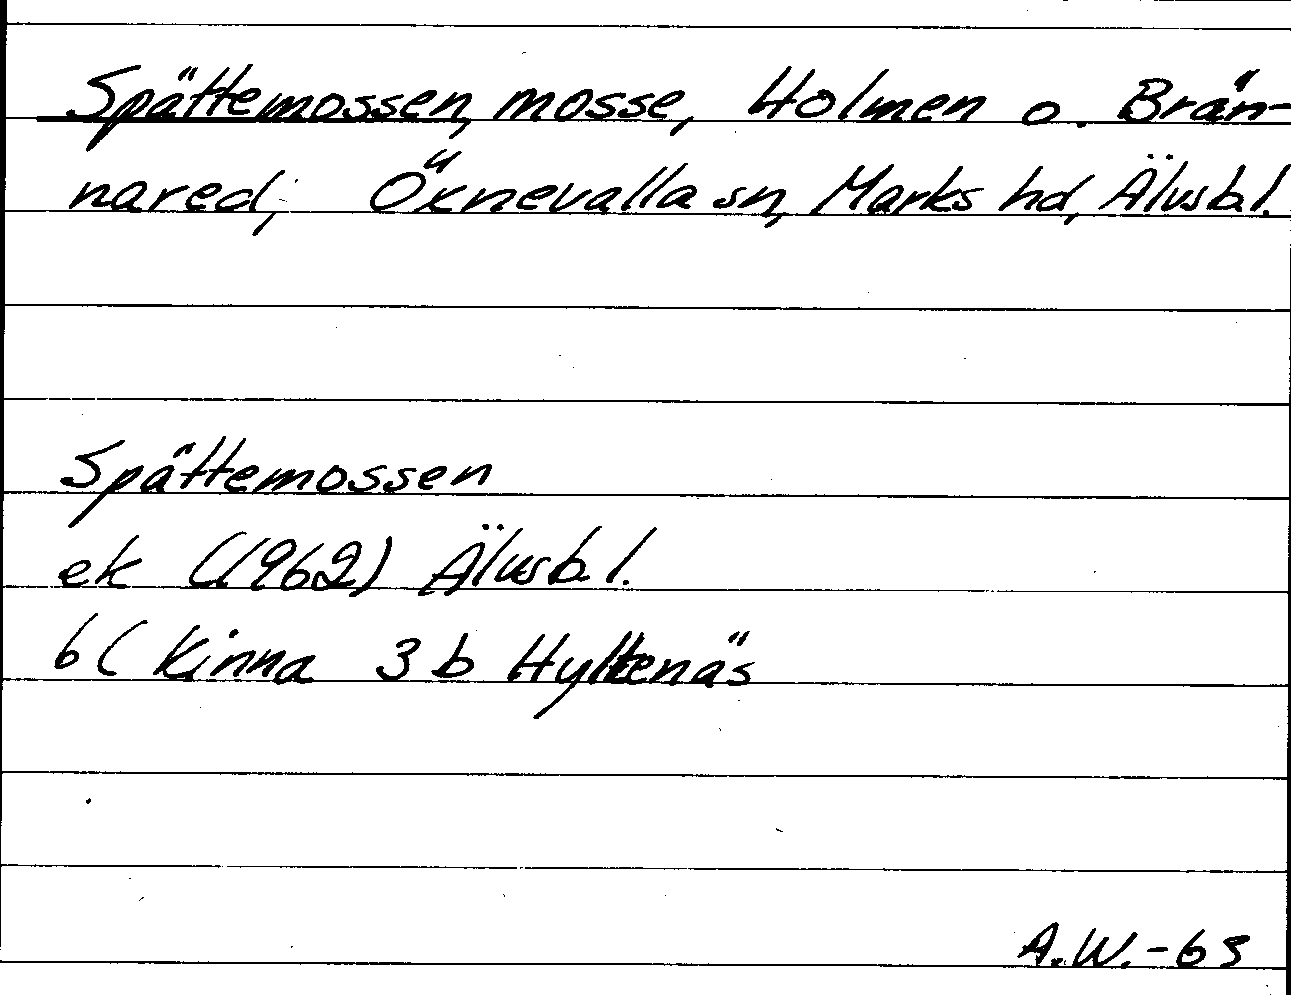 Spättemossen, mosse, Holmen o. Brän-
nared, Öxnevalla sn, Marks hd, Älvsb.l.
Spättemossen
ek (1962) Älvsb.l.
6C Kinna 3b Hyltenäs
A.W.-63